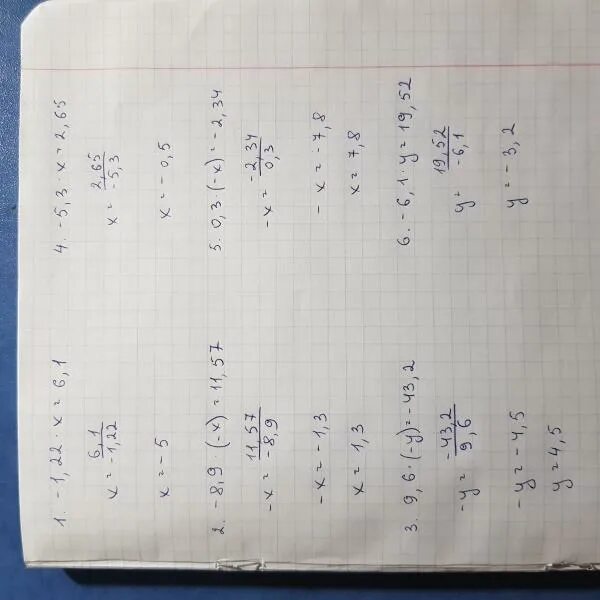 1. -1,22 · x = 6,1
x = 6,1 / -1,22
x = -5
2. -8,9 · (-x) = 11,57
-x = 11,57 / -8,9
-x = -1,3
x = 1,3
3. 9,6 · (-y) = -43,2
-y = -43,2 / 9,6
-y = -4,5
y = 4,5
4. -5,3 · x = 2,65
x = 2,65 / -5,3
x = -0,5
5. 0,3 · (-x) = -2,34
-x = -2,34 / 0,3
-x = -7,8
x = 7,8
6. -6,1 · y = 19,52
y = 19,52 / -6,1
y = -3,2